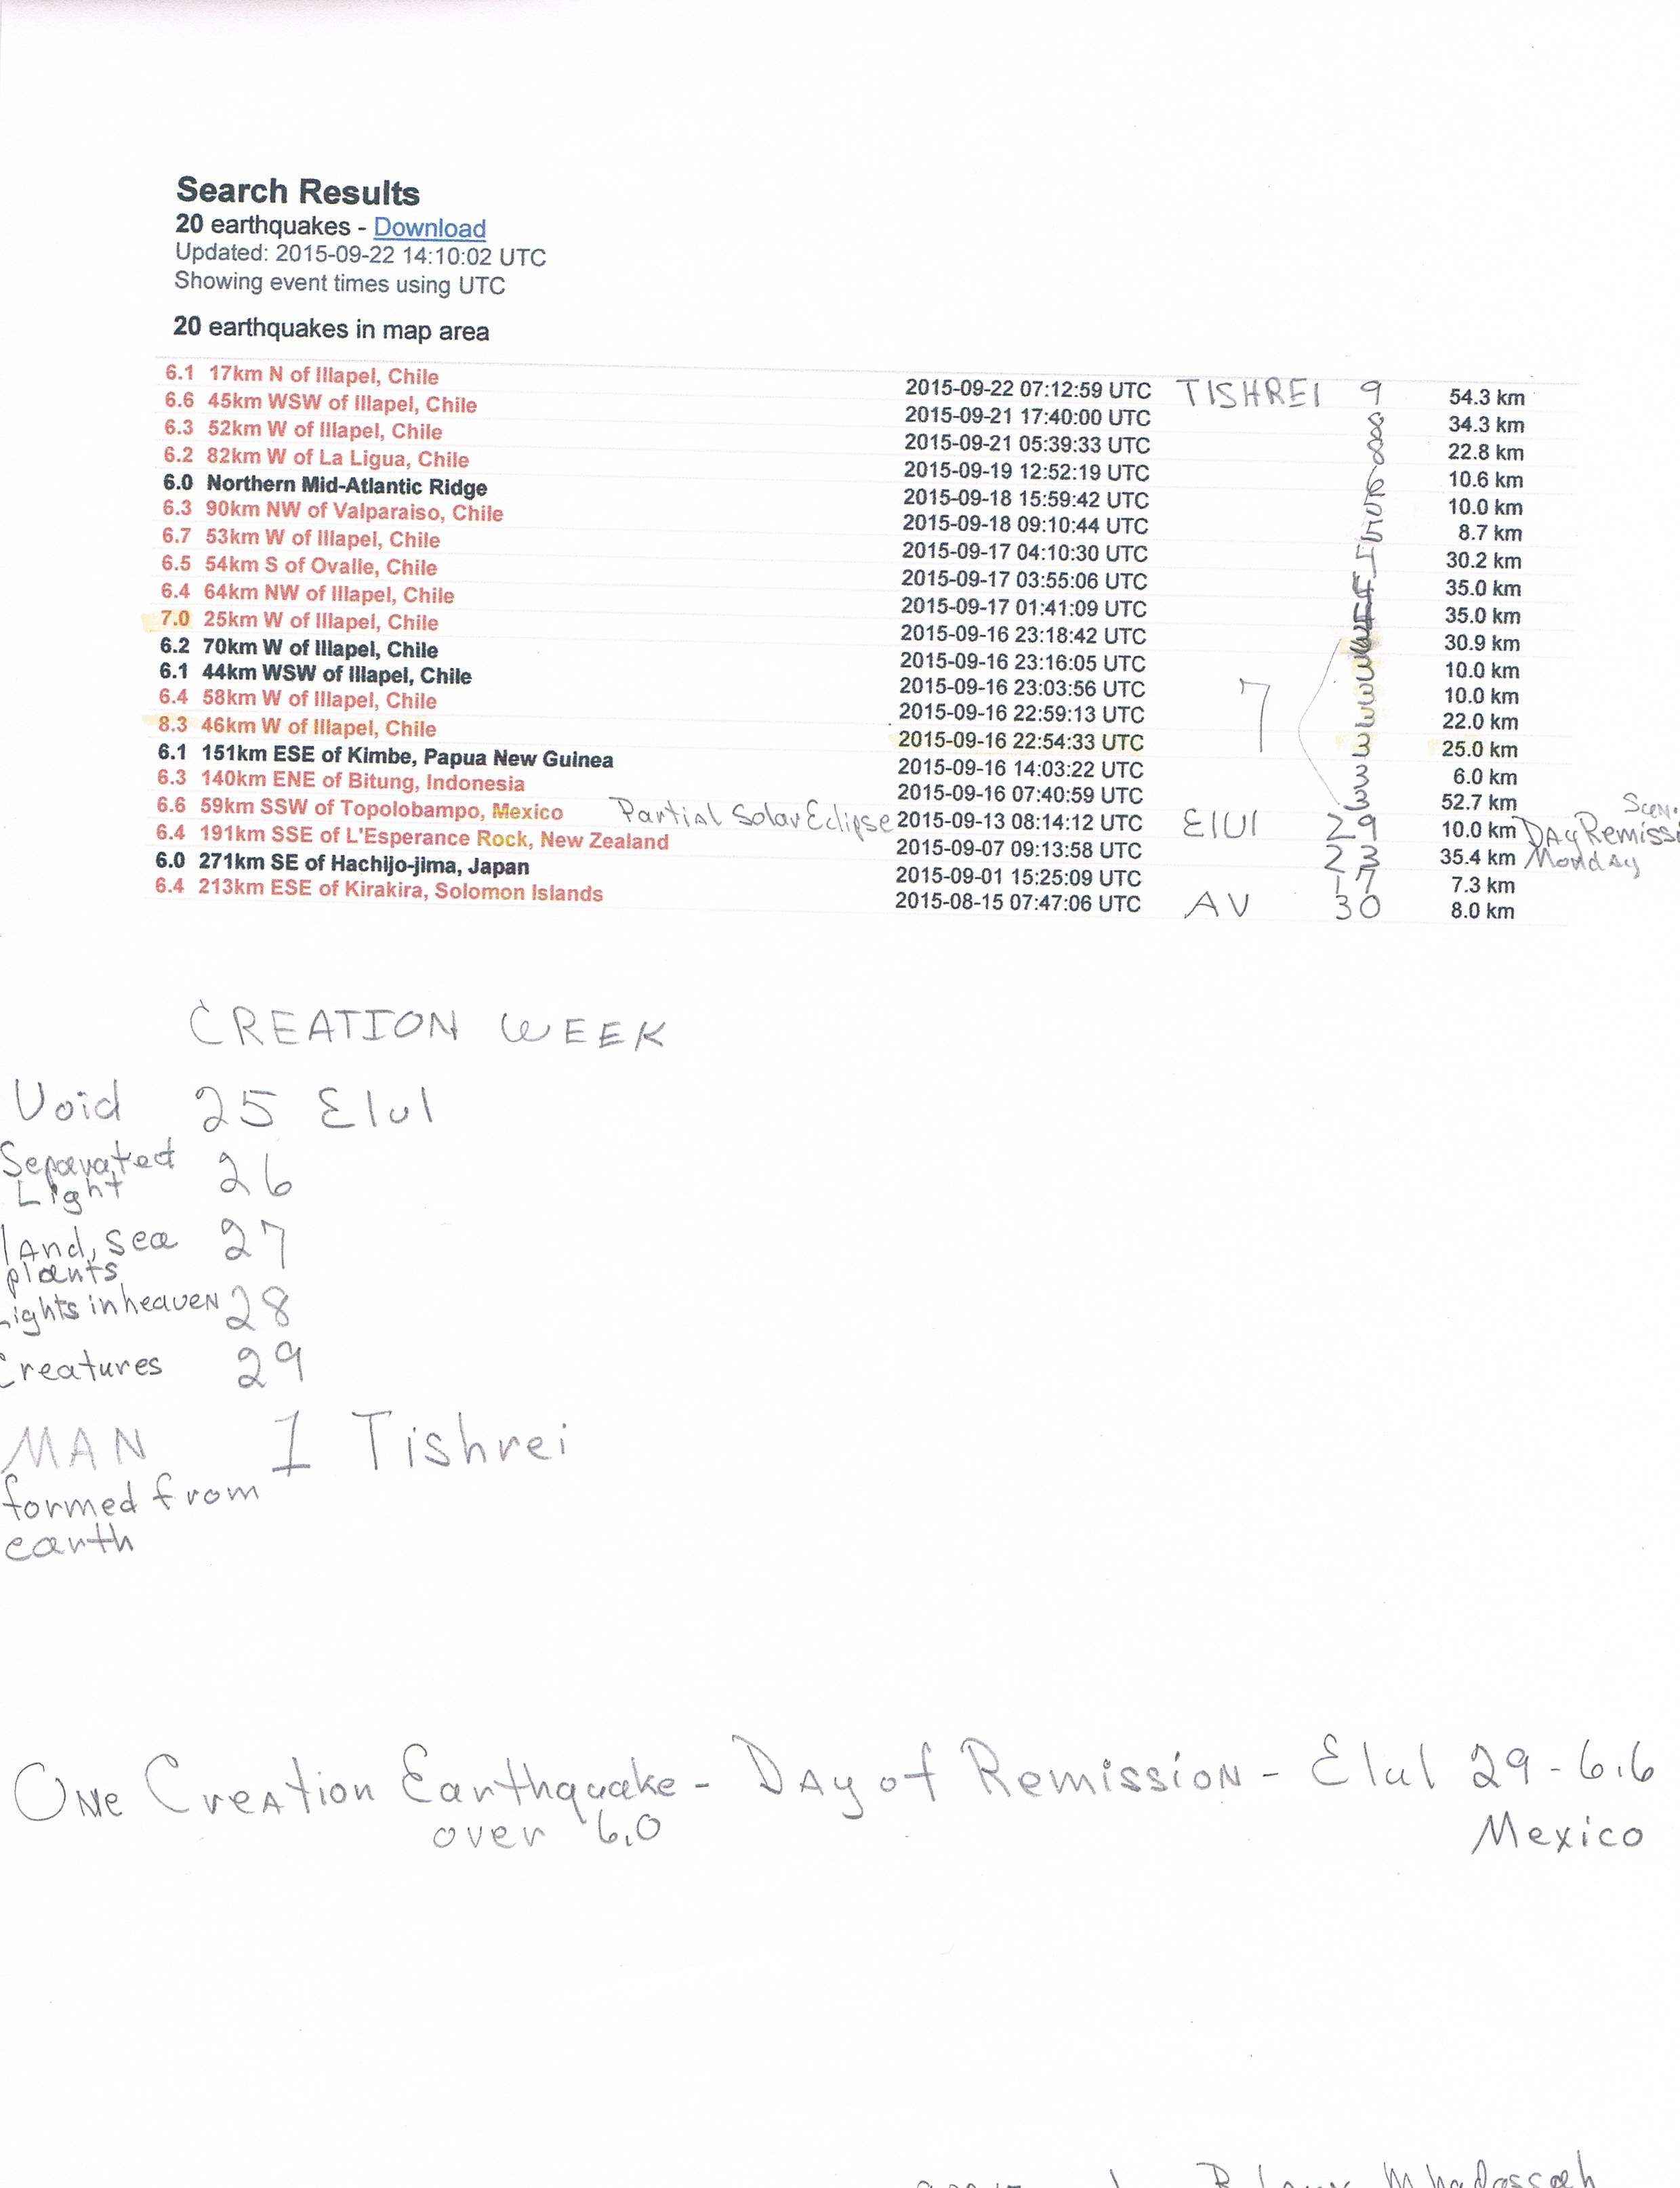 Search Results
20 earthquakes - Download
Updated: 2015-09-22 14:10:02 UTC
Showing event times using UTC
20 earthquakes in map area
6.1 17km N of Illapel, Chile 2015-09-22 07:12:59 UTC TISHREI 9 54.3 km
6.6 45km WSW of Illapel, Chile 2015-09-21 17:40:00 UTC 8 34.3 km
6.3 52km W of Illapel, Chile 2015-09-21 05:39:33 UTC 8 22.8 km
6.2 82km W of La Ligua, Chile 2015-09-19 12:52:19 UTC 6 10.6 km
6.0 Northern Mid-Atlantic Ridge 2015-09-18 15:59:42 UTC 5 10.0 km
6.3 90km NW of Valparaiso, Chile 2015-09-18 09:10:44 UTC 5 8.7 km
6.7 53km W of Illapel, Chile 2015-09-17 04:10:30 UTC 30.2 km
6.5 54km S of Ovalle, Chile 2015-09-17 03:55:06 UTC 35.0 km
6.4 64km NW of Illapel, Chile 2015-09-17 01:41:09 UTC 35.0 km
7.0 25km W of Illapel, Chile 2015-09-16 23:18:42 UTC 30.9 km
6.2 70km W of Illapel, Chile 2015-09-16 23:16:05 UTC 3 10.0 km
6.1 44km WSW of Illapel, Chile 2015-09-16 23:03:56 UTC 3 10.0 km
6.4 58km W of Illapel, Chile 2015-09-16 22:59:13 UTC 7 3 22.0 km
8.3 46km W of Illapel, Chile 2015-09-16 22:54:33 UTC 3 25.0 km
6.1 151km ESE of Kimbe, Papua New Guinea 2015-09-16 14:03:22 UTC 3 6.0 km
6.3 140km ENE of Bitung, Indonesia 2015-09-16 07:40:59 UTC 3 52.7 km
6.6 59km SSW of Topolobampo, Mexico Partial Solar Eclipse 2015-09-13 08:14:12 UTC Elul 29 10.0 km Day Remissi
6.4 191km SSE of L'Esperance Rock, New Zealand 2015-09-07 09:13:58 UTC 23 35.4 km Monday
6.0 271km SE of Hachijo-jima, Japan 2015-09-01 15:25:09 UTC 17 7.3 km
6.4 213km ESE of Kirakira, Solomon Islands 2015-08-15 07:47:06 UTC AV 30 8.0 km
CREATION WEEK
Void 25 Elul
Separated 26
Light
land, sea 27
plants
ights in heaven 28
Creatures 29
MAN 1 Tishrei
formed from
earth
One Creation Earthquake - Day of Remission - Elul 29 - 6.6
over 6.0 Mexico